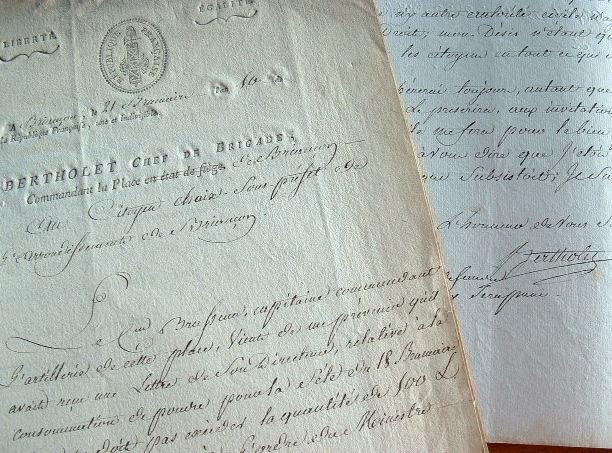 LIBERTÉ
ÉGALITÉ
RÉPUBLIQUE FRANÇAISE
A Briançon, le 21 Brumaire l'an 10
La République Française, une et indivisible
BERTHOLET CHEF DE BRIGADE,
Commandant la Place en état de siège, de Briançon
Au Citoyen chaix Sous préfet de
l'arrondissement de Briançon
Le Cen capitaine commandant
l'artillerie de cette place, vient de me prévenir qu'il
avait reçu une Lettre de Son Directeur, relative à la
consommation de poudre pour la fête du 18 Brumaire
doit pas excéder la quantité de 100 L.
l'ordre du Ministre
autre autorité civile
Droit; mon Désir n'étant
les citoyens en tout ce qui
toujours, autant que
Le prescrire, aux invitations
me fera pour le bien
Vous dire que
que Subsistoit; Je
L'honneur de Vous
Bertholet